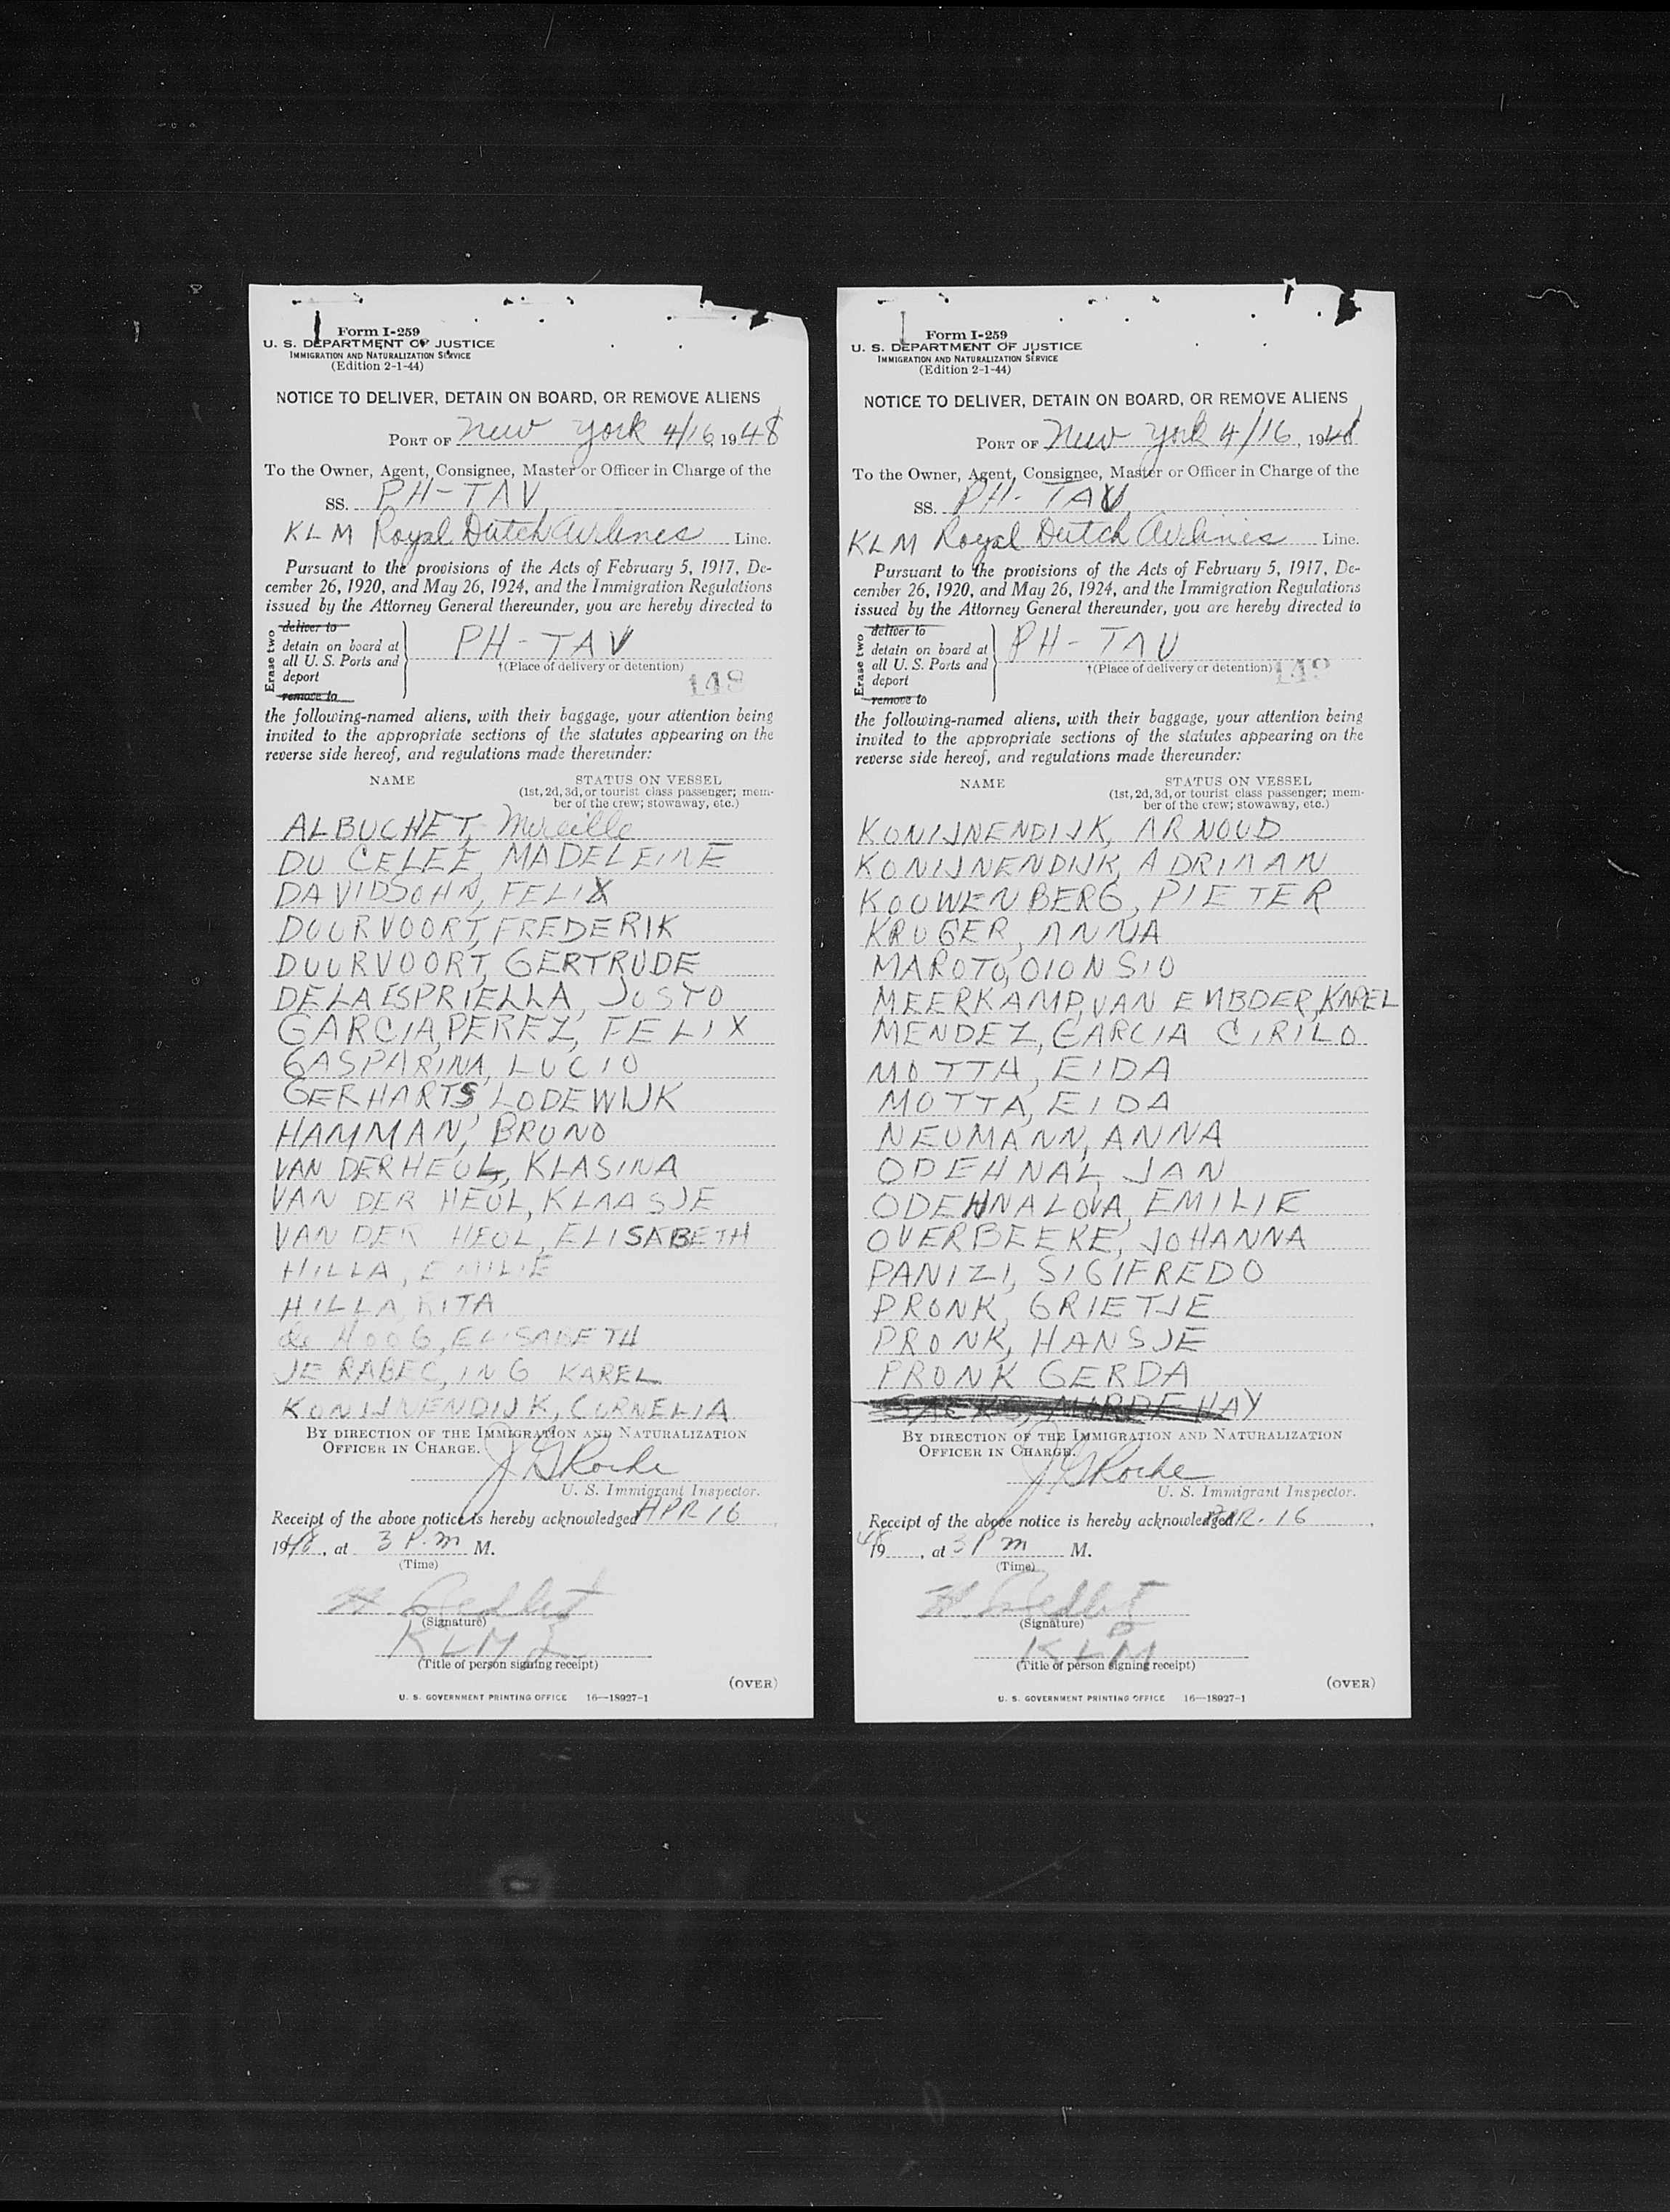 Form I-259
U. S. DEPARTMENT OF JUSTICE
IMMIGRATION AND NATURALIZATION SERVICE
(Edition 2-1-44)
NOTICE TO DELIVER, DETAIN ON BOARD, OR REMOVE ALIENS
PORT OF New York 4/16, 1948
To the Owner, Agent, Consignee, Master or Officer in Charge of the
SS. PH-TAV
KLM Royal Dutch Airlines Line.
Pursuant to the provisions of the Acts of February 5, 1917, De-
cember 26, 1920, and May 26, 1924, and the Immigration Regulations
issued by the Attorney General thereunder, you are hereby directed to
Erase two
deliver to
detain on board at
all U. S. Ports and
deport
remove to
PH-TAV
†(Place of delivery or detention)
148
the following-named aliens, with their baggage, your attention being
invited to the appropriate sections of the statutes appearing on the
reverse side hereof, and regulations made thereunder:
NAME STATUS ON VESSEL
(1st, 2d, 3d, or tourist class passenger; mem-
ber of the crew; stowaway, etc.)
ALBUCHET, Mireille
DU CELEE, MADELEINE
DAVIDSOHN, FELIX
DUURVOORT, FREDERIK
DUURVOORT, GERTRUDE
DELAESPRIELLA, JUSTO
GARCIA, PEREZ, FELIX
GASPARINA, LUCIO
GERHARTS, LODEWIJK
HAMMAN, BRUNO
VAN DER HEUL, KLASINA
VAN DER HEUL, KLAASJE
VAN DER HEUL, ELISABETH
HILLA, EMILIE
HILLA, RITA
de HOOG, ELISABETH
JERABEC, ING KAREL
KONIJNENDIJK, CORNELIA
BY DIRECTION OF THE IMMIGRATION AND NATURALIZATION
OFFICER IN CHARGE.
J G Roche
U. S. Immigrant Inspector.
Receipt of the above notice is hereby acknowledged APR 16,
1948, at 3 P.m M.
(Time)
(Signature)
KLM
(Title of person signing receipt)
(OVER)
U. S. GOVERNMENT PRINTING OFFICE 16—18927-1
Form I-259
U. S. DEPARTMENT OF JUSTICE
IMMIGRATION AND NATURALIZATION SERVICE
(Edition 2-1-44)
NOTICE TO DELIVER, DETAIN ON BOARD, OR REMOVE ALIENS
PORT OF New York 4/16, 1948
To the Owner, Agent, Consignee, Master or Officer in Charge of the
SS. PH-TAV
KLM Royal Dutch Airlines Line.
Pursuant to the provisions of the Acts of February 5, 1917, De-
cember 26, 1920, and May 26, 1924, and the Immigration Regulations
issued by the Attorney General thereunder, you are hereby directed to
Erase two
deliver to
detain on board at
all U. S. Ports and
deport
remove to
PH-TAV
†(Place of delivery or detention)
the following-named aliens, with their baggage, your attention being
invited to the appropriate sections of the statutes appearing on the
reverse side hereof, and regulations made thereunder:
NAME STATUS ON VESSEL
(1st, 2d, 3d, or tourist class passenger; mem-
ber of the crew; stowaway, etc.)
KONIJNENDIJK, ARNOUD
KONIJNENDIJK, ADRIAAN
KOUWENBERG, PIETER
KRUGER, ANNA
MAROTO, DIONSIO
MEERKAMP, VAN EMBDER, KAREL
MENDEZ, GARCIA CIRILO
MOTTA, EIDA
MOTTA, EIDA
NEUMANN, ANNA
ODEHNAL, JAN
ODEHNALOVA, EMILIE
OVERBEEKE, JOHANNA
PANIZI, SIGIFREDO
PRONK, GRIETJE
PRONK, HANSJE
PRONK GERDA
BY DIRECTION OF THE IMMIGRATION AND NATURALIZATION
OFFICER IN CHARGE.
J G Roche
U. S. Immigrant Inspector.
Receipt of the above notice is hereby acknowledged APR. 16,
1948, at 3 Pm M.
(Time)
(Signature)
KLM
(Title of person signing receipt)
(OVER)
U. S. GOVERNMENT PRINTING OFFICE 16—18927-1